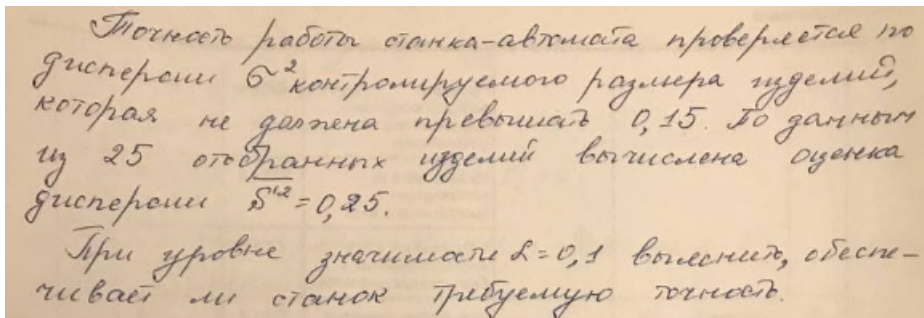 Точность работы станка-автомата проверяется по
дисперсии σ² контролируемого размера изделий,
которая не должена превышать 0,15. По данным
из 25 отобранных изделий вычислена оценка
дисперсии S'² = 0,25.
При уровне значимости α = 0,1 выяснить, обеспе-
чивает ли станок требуемую точность.